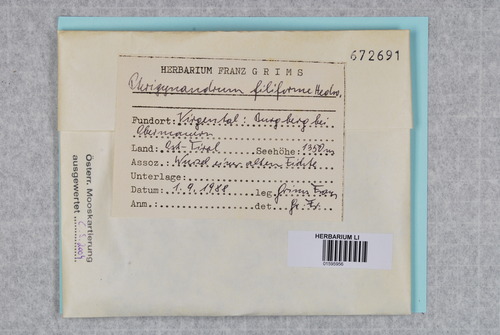 672691
HERBARIUM FRANZ GRIMS
Pterigynandrum filiforme Hedw.
Fundort: Virgental: Burgberg bei
Obermauern
Land: Ost-Tirol Seehöhe: 1350m
Assoz. Wurzel einer alten Fichte
Unterlage:
Datum: 1.9.1988 leg. Grims Franz
Anm.: det. Gr. Fr.
Österr. Mooskartierung
ausgewertet
HERBARIUM LI